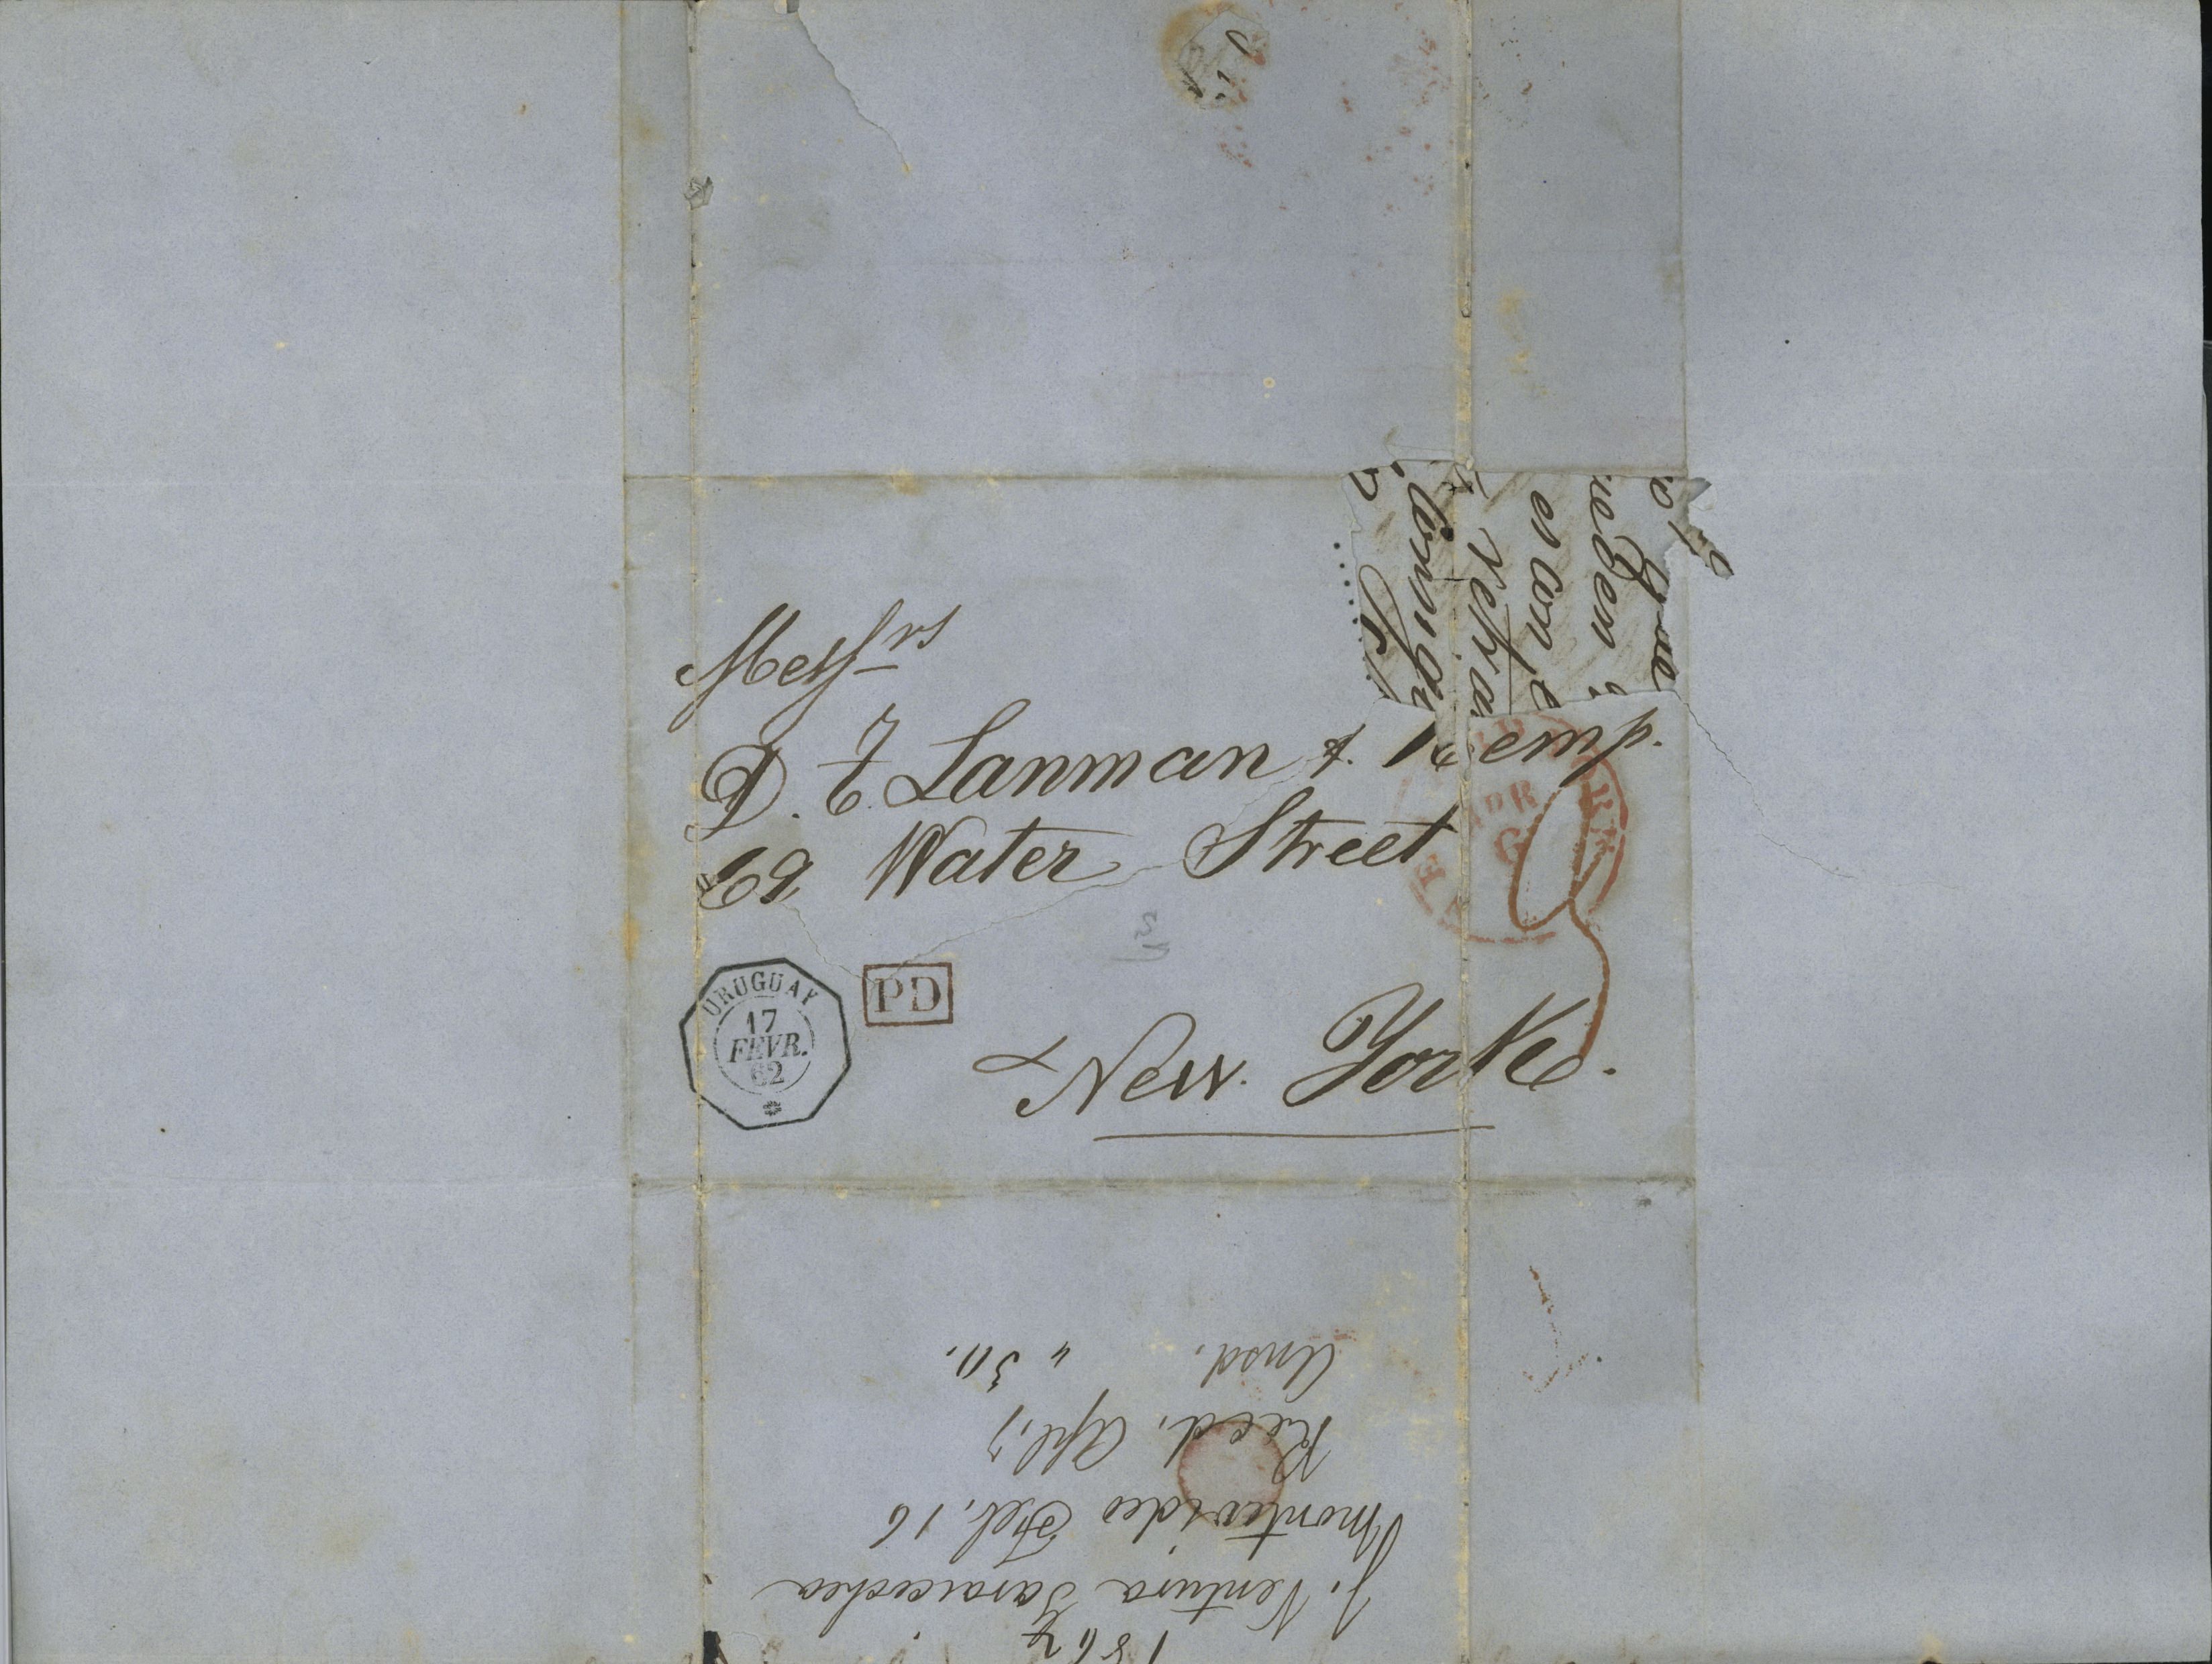 Messrs
D. T. Lanman & Kemp.
69 Water Street
New York.
URUGUAY
17
FEVR.
62
PD
1862
J. Ventura Garaicochea
Montevideo Feb. 16
Recd. Apl. 7
Ansd. " 30.